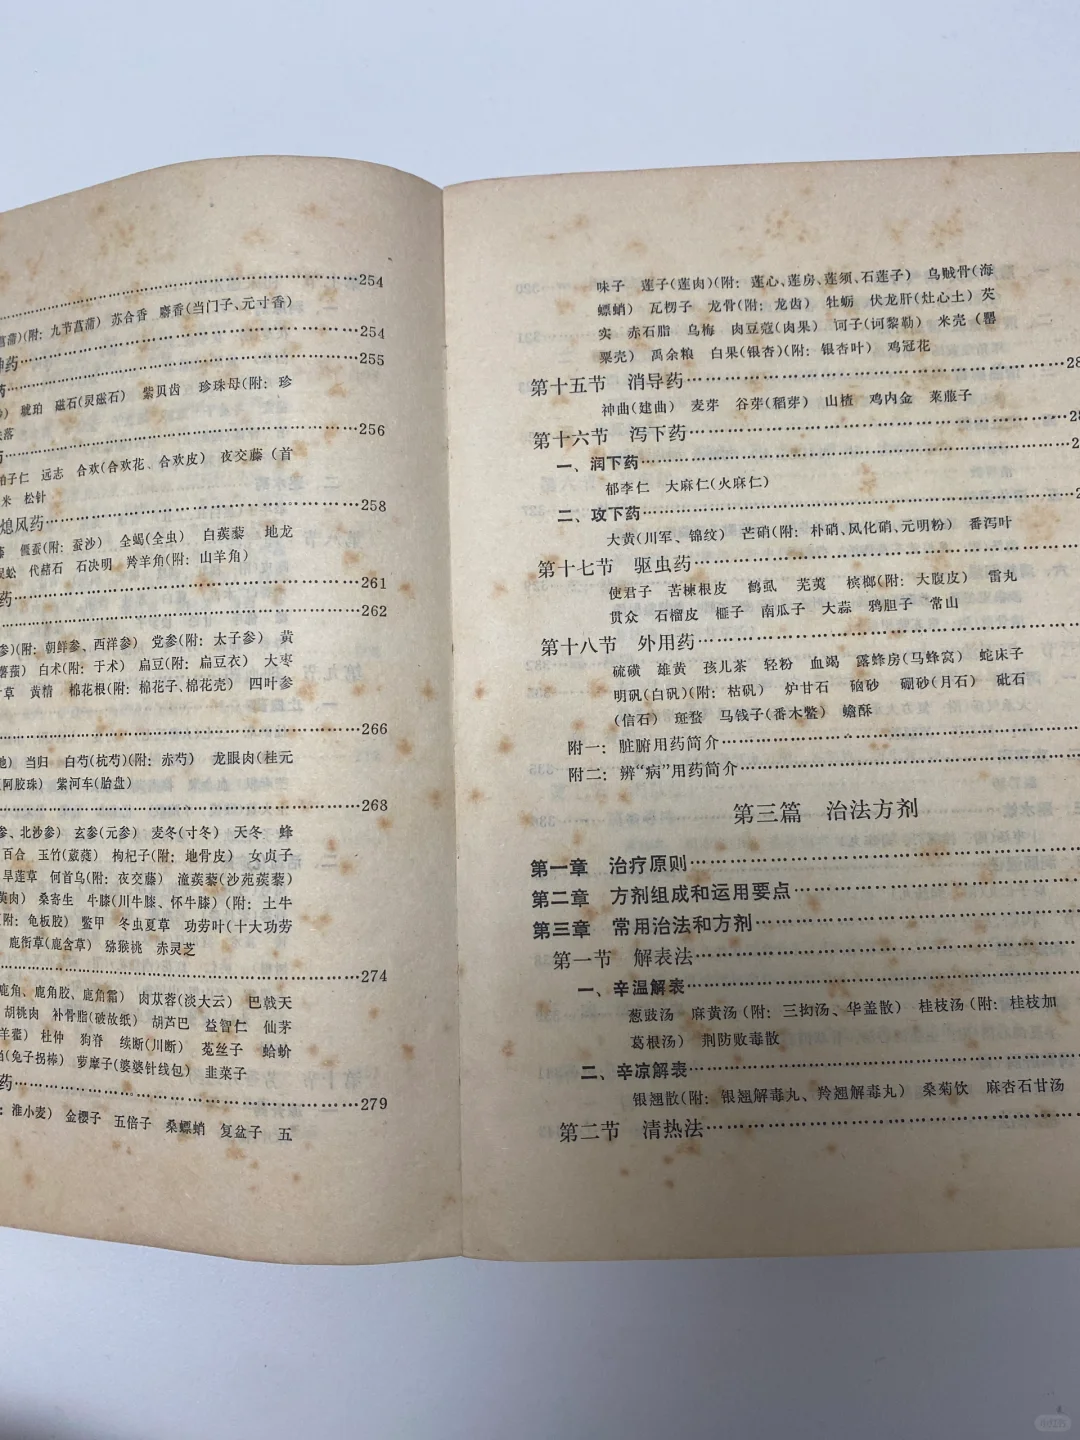 ……254
菖蒲)(附：九节菖蒲) 苏合香 麝香(当门子、元寸香)
神药……254
药……255
琥珀 磁石(灵磁石) 紫贝齿 珍珠母(附：珍
……256
柏子仁 远志 合欢(合欢花、合欢皮) 夜交藤 (首
米 松针
熄风药……258
僵蚕(附：蚕沙) 全蝎(全虫) 白蒺藜 地龙
蜈蚣 代赭石 石决明 羚羊角(附：山羊角)
药……261
……262
参)(附：朝鲜参、西洋参) 党参(附：太子参) 黄
薯蓣) 白术(附：于术) 扁豆(附：扁豆衣) 大枣
草 黄精 棉花根(附：棉花子、棉花壳) 四叶参
……266
当归 白芍(杭芍)(附：赤芍) 龙眼肉(桂元
阿胶珠) 紫河车(胎盘)
……268
参、北沙参) 玄参(元参) 麦冬(寸冬) 天冬 蜂
百合 玉竹(葳蕤) 枸杞子(附：地骨皮) 女贞子
旱莲草 何首乌(附：夜交藤) 潼蒺藜(沙苑蒺藜)
萸肉) 桑寄生 牛膝(川牛膝、怀牛膝) (附：土牛
附：龟板胶) 鳖甲 冬虫夏草 功劳叶(十大功劳
鹿衔草(鹿含草) 猕猴桃 赤灵芝
……274
鹿角、鹿角胶、鹿角霜) 肉苁蓉(淡大云) 巴戟天
胡桃肉 补骨脂(破故纸) 胡芦巴 益智仁 仙茅
羊藿) 杜仲 狗脊 续断(川断) 菟丝子 蛤蚧
(兔子拐棒) 萝摩子(婆婆针线包) 韭菜子
药……279
：淮小麦) 金樱子 五倍子 桑螵蛸 复盆子 五
味子 莲子(莲肉)(附：莲心、莲房、莲须、石莲子) 乌贼骨(海
螵蛸) 瓦楞子 龙骨(附：龙齿) 牡蛎 伏龙肝(灶心土) 芡
实 赤石脂 乌梅 肉豆蔻(肉果) 诃子(诃黎勒) 米壳 (罂
粟壳) 禹余粮 白果(银杏)(附：银杏叶) 鸡冠花
第十五节 消导药……28
神曲(建曲) 麦芽 谷芽(稻芽) 山楂 鸡内金 莱菔子
第十六节 泻下药……28
一、润下药……2
郁李仁 大麻仁(火麻仁)
二、攻下药……2
大黄(川军、锦纹) 芒硝(附：朴硝、风化硝、元明粉) 番泻叶
第十七节 驱虫药……
使君子 苦楝根皮 鹤虱 芜荑 槟榔(附：大腹皮) 雷丸
贯众 石榴皮 榧子 南瓜子 大蒜 鸦胆子 常山
第十八节 外用药……
硫磺 雄黄 孩儿茶 轻粉 血竭 露蜂房(马蜂窝) 蛇床子
明矾(白矾)(附：枯矾) 炉甘石 硇砂 硼砂(月石) 砒石
(信石) 斑蝥 马钱子(番木鳖) 蟾酥
附一：脏腑用药简介……
附二：辨“病”用药简介……
第三篇 治法方剂
第一章 治疗原则……
第二章 方剂组成和运用要点……
第三章 常用治法和方剂……
第一节 解表法……
一、辛温解表……
葱豉汤 麻黄汤(附：三拗汤、华盖散) 桂枝汤(附：桂枝加
葛根汤) 荆防败毒散
二、辛凉解表……
银翘散(附：银翘解毒丸、羚翘解毒丸) 桑菊饮 麻杏石甘汤
第二节 清热法……